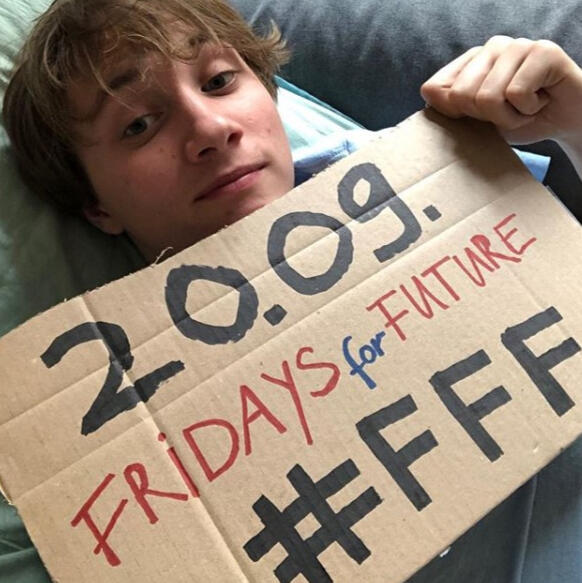 20.09.
FRiDAYS for FUTURE
#FFF